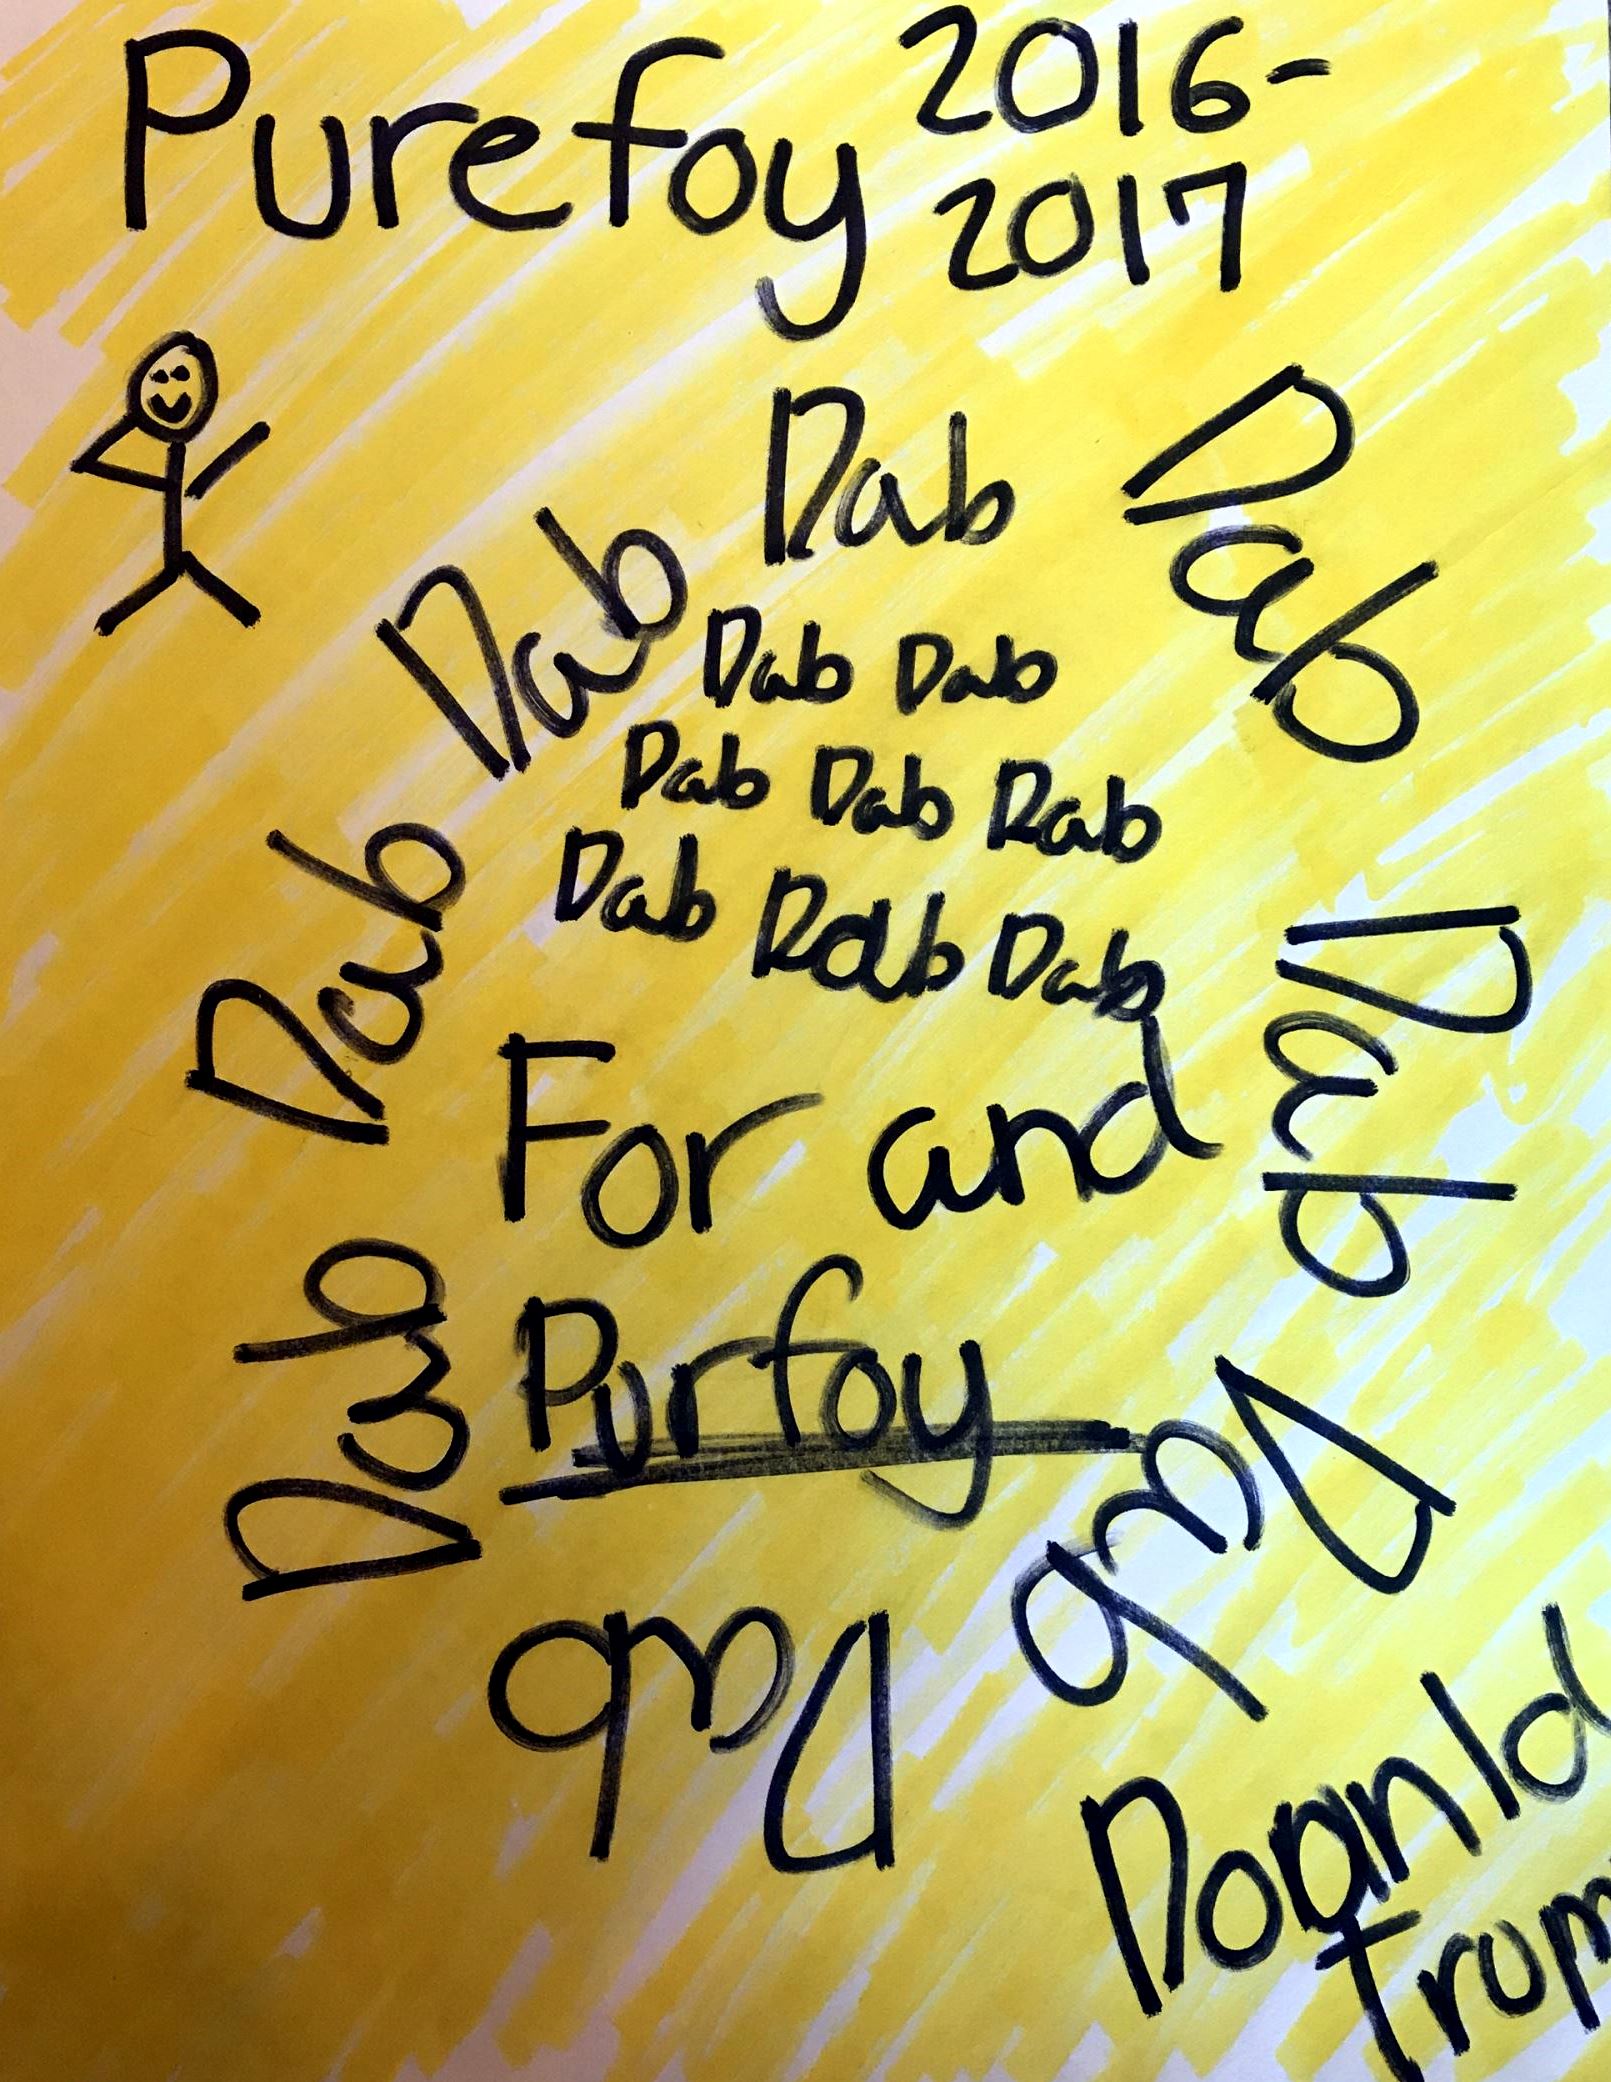 Purefoy 2016-
2017
Dab
Dab
Dab
Dab Dab
Dab Dab Dab
Dab Dab Dab
Dab
Dab
For and
Dab
Purfoy
Dab
Dab
Doanld
Trum